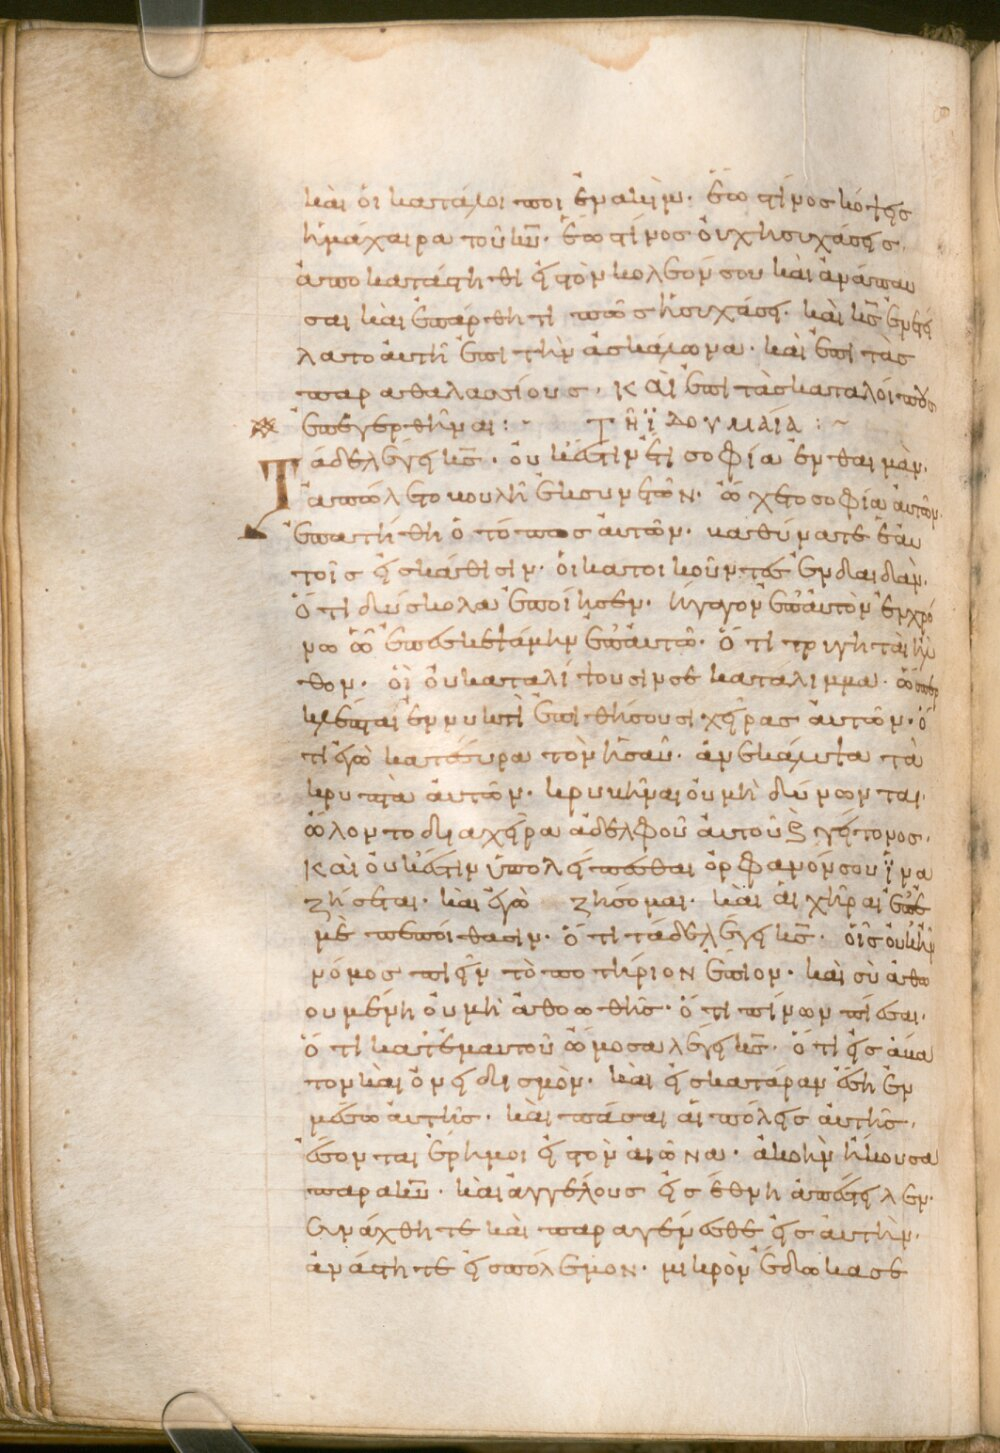 καὶ οἱ κατάλοιποι ἐνακὶμ. ἕω τίνος κόψεις
ἡ μάχαιρα τοῦ κῦ. ἕω τίνος οὐχ ἡσυχάσεις.
ἀποκατάστηθι εἰς τὸν κολεόν σου καὶ ἀνάπαυ
σαι καὶ ἐπάρθητι πῶς ἡσυχάσει. καὶ κς ἐνετεί
λατο αὐτῆ ἐπὶ τὴν ἀσκάλωνα. καὶ ἐπὶ τὰς
παραθαλασσίους. καὶ ἐπὶ τὰς καταλοίπους
ἐπεγερθῆναι: ~ ΤΗ ΪΔΟΥΜΑΙΑ : ~
Τάδε λέγει κς. οὐκ ἔστιν ἔτι σοφία ἐν θαιμὰν.
ἀπώλετο βουλὴ ἐκ συνετῶν. ὤχετο σοφία αὐτῶν
ἠπατήθη ὁ τόπος αὐτῶν. βαθύνατε ἑαυ
τοῖς εἰς κάθισιν. οἱ κατοικοῦντες ἐν δαιδὰν.
ὅτι δύσκολα ἐποίησεν. ἤγαγον ἐπ αὐτὸν ἐν χρό
νω ὧ ἐπεσκεψάμην ἐπ αὐτῶ. ὅτι τρυγηταὶ ἦλ
θον. οἳ οὐ καταλίψουσιν σε κατάλιμμα. ὥσπερ
κλέπται ἐν νυκτὶ ἐπιθήσουσι χεῖρας αὐτῶν. ὅ
τι ἐγὼ κατέσυρα τὸν ἠσαῦ. ἀνεκάλυψα τὰ
κρυπτὰ αὐτῶν. κρυβῆναι οὐ μὴ δύνωνται.
ὤλοντο δια χεῖρα ἀδελφοῦ αὐτοῦ ϗ γείτονος.
Καὶ οὐκ ἔστιν ὑπολείπεσθαι ὀρφανόν σου ἵνα
ζήσεται. καὶ ἐγὼ ζήσομαι. καὶ αἱ χῆραι ἐπ ἐ
μὲ πεποίθασιν. ὅτι τάδε λέγει κς. οἷς οὐκ ἦν
νόμος πιεῖν τὸ ποτήριον ἔπιον. καὶ σὺ ἀθω
ουμένη οὐ μὴ ἀθοωθῆς. ὅτι πίνων πίεσαι.
ὅτι κατ ἐμαυτοῦ ὤμοσα λέγει κς. ὅτι εἰς ἄβα
τον καὶ ὀνειδισμὸν. καὶ εἰς κατάραν ἔση ἐν
μέσω αὐτῆς. καὶ πᾶσαι αἱ πόλεις αὐτῆς.
ἔσονται ἔρημοι εἰς τὸν αἰῶνα. ἀκοὴν ἤκουσα
παρα κῦ. καὶ ἀγγέλους εἰς ἔθνη ἀπέστειλεν.
συνάχθητε καὶ παραγένεσθε εἰς αὐτὴν.
ἀνάστητε εἰς πόλεμον. μικρὸν ἔδωκα σε